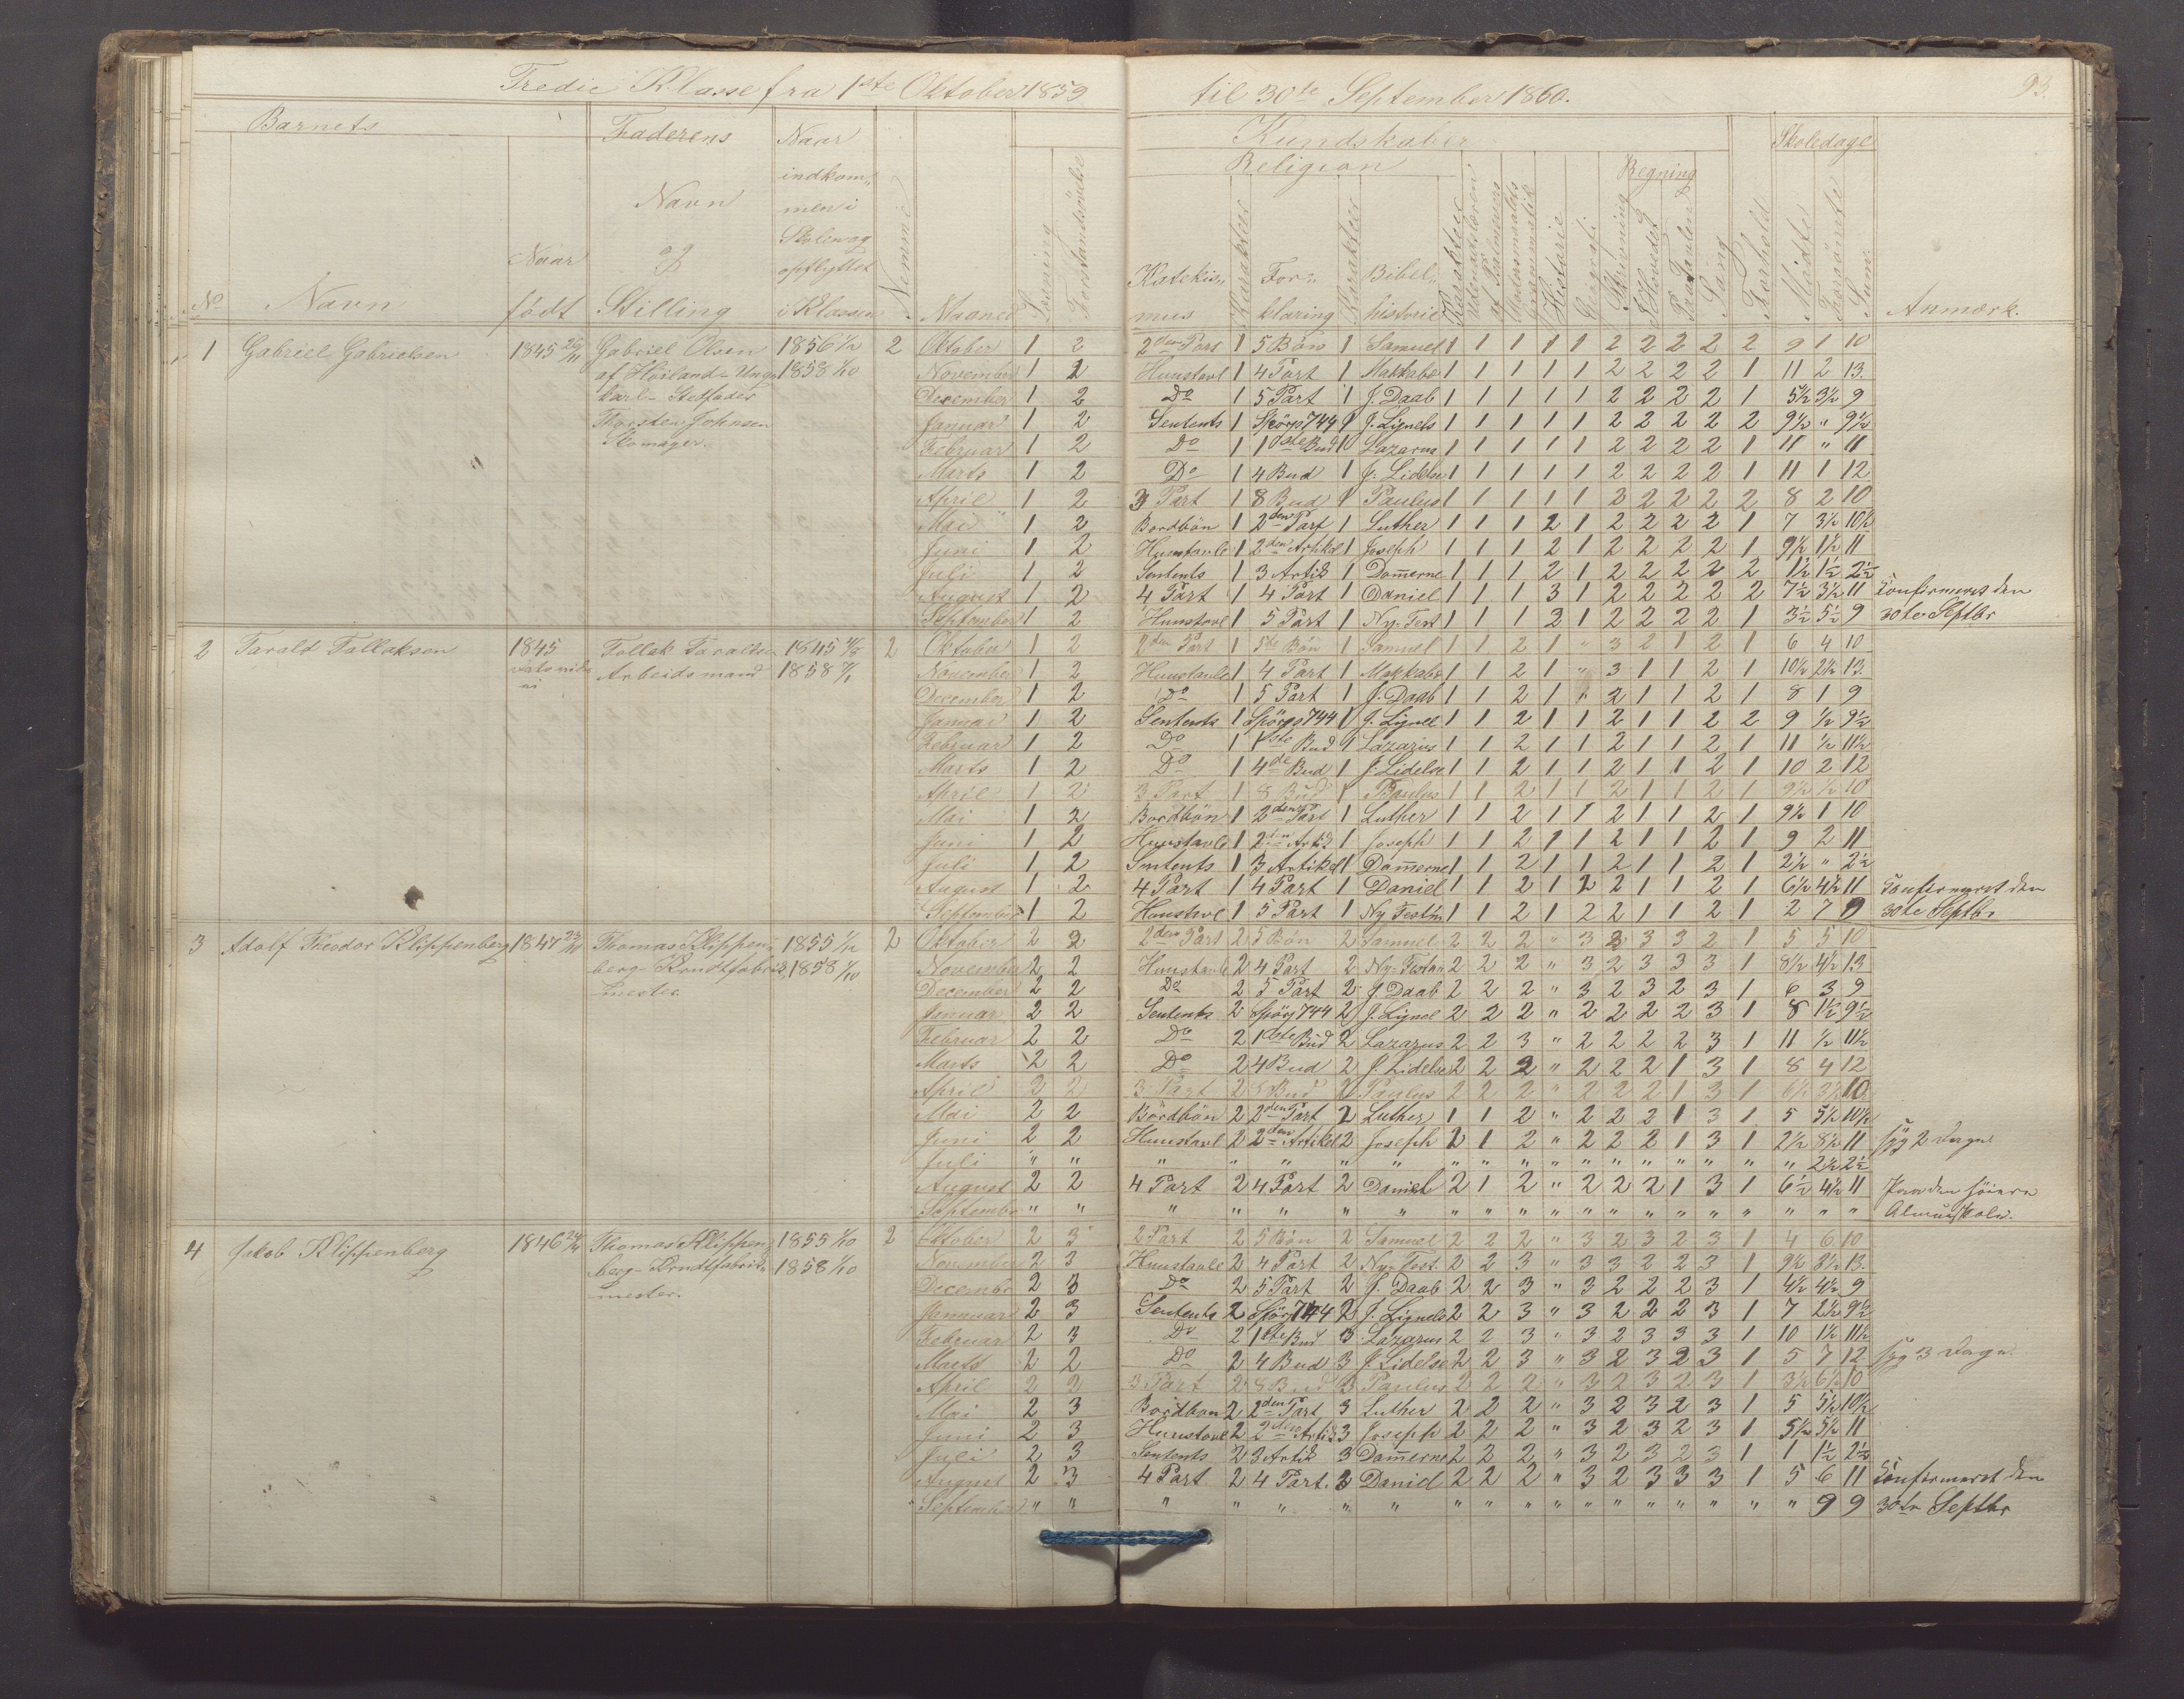 Tredie Klasse fra 1ste Oktober 1859 til 30te September 1860. 93.
Barnets Faderens Naar indkommen i Skolen og opflyttet i Klassen Nemme Maaned Læsning Forstandsövelse Kundskaber Religion Regning Skoledage
No Navn Naar født Navn og Stilling Katekismus Karakter Forklaring Karakter Bibelhistorie Karakter Historie Geografi Skrivning I Hovedet Paa Tavlen Sang Forhold Mödte Forsömte Sum. Anmærk.
1 Gabriel Gabrielsen 1845 Gabriel Olsen 1856 1/2 2 Oktober 1 2 2den Part 1 5 Bön 1 Samuel 1 1 1 1 1 2 2 2 2 2 9 1 10
af Höiland - Ung- 1858 1/10 November 1 2 Huustavl 1 4 Part 1 Makkabæ 1 1 1 1 1 2 2 2 2 1 11 2 13.
karl - Stetfader December 1 2 Do 1 5 Part 1 J. Daab 1 1 1 1 1 2 2 2 2 1 5 1/2 3 1/2 9
Thorsten Johnsen Januar 1 2 Sentents 1 Spörgs 744 1 J. Lignels 1 1 1 1 1 2 2 2 2 2 9 1/2 " 9 1/2
Skomager. Februar 1 2 Do 1 1ste Bud 1 Lazarus 1 1 1 1 1 2 2 2 2 1 11 " 11
Marts 1 2 Do 1 4 Bud 1 J. Lidelse 1 1 1 1 1 2 2 2 2 1 11 1 12
April 1 2 3 Part 1 8 Bud 1 Paulus 1 1 1 1 1 3 2 2 2 2 8 2 10
Mai 1 2 Bordbön 1 2den Part 1 Luther 1 1 1 2 1 2 2 2 2 1 7 3 1/2 10 1/2
Juni 1 2 Huustavle 1 2den Artikel 1 Joseph 1 1 1 2 1 2 2 2 2 1 9 1/2 1 1/2 11
Juli 1 2 Sentents 1 3 Artik 1 Dommerne 1 1 1 2 1 2 2 2 2 2 1 1/2 1 1/2 2 1/2
August 1 2 4 Part 1 4 Part 1 Daniel 1 1 1 3 1 2 2 2 2 2 7 1/2 3 1/2 11 Confirmeret den
September 1 2 Huustavl 1 5 Part 1 Ny-Test 1 1 1 3 1 2 2 2 2 1 3 1/2 5 1/2 9 30te Septbr
2 Tarald Tallaksen 1845 Tollak Taraldsen 2 Oktober 1 2 2den Part 1 5te Bön 1 Samuel 1 1 2 1 " 3 2 1 2 1 6 4 10
Arbeidsmand 1858 November 1 2 Huustavle 1 4 Part 1 Makkabæ 1 1 2 1 " 3 1 1 2 1 10 1/2 2 1/2 13.
December 1 2 Do 1 5 Part 1 J. Daab 1 1 2 1 " 2 1 1 2 1 8 1 9
Januar 1 2 Sentents 1 Spörgs 744 1 J. Lignel 1 1 2 1 1 2 1 1 2 2 9 1/2 9 1/2
Februar 1 2 Do 1 1ste Bud 1 Lazarus 1 1 2 1 1 2 1 1 2 1 11 1/2 11 1/2
Marts 1 2 Do 1 4de Bud 1 J. Lidelse 1 1 2 1 1 2 1 1 2 1 10 2 12
April 1 2 3 Part 1 8 Bud 1 Paulus 1 1 2 1 1 2 1 1 2 1 9 1/2 1/2 10
Mai 1 2 Bordbön 1 2den Part 1 Luther 1 1 2 1 1 2 1 1 2 1 9 1/2 1 10
Juni 1 2 Huustavle 1 2den Artik 1 Joseph 1 1 2 1 1 2 1 1 2 1 9 2 11
Juli 1 2 Sentents 1 3 Artikel 1 Dommerne 1 1 2 1 1 2 1 1 2 1 2 1/2 " 2 1/2
August 1 2 4 Part 1 4 Part 1 Daniel 1 1 2 1 2 2 1 1 2 1 6 1/2 4 1/2 11 Confirmeret den
September 1 2 Huustavl 1 5 Part 1 Ny Testm 1 1 2 1 2 2 1 1 2 1 2 7 9 30te Septbr
3 Adolf Theodor Klippenberg 1847 Thomas Klippen- 1855 1/2 2 Oktober 2 2 2den Part 2 5 Bön 2 Samuel 2 2 2 " 3 3 3 3 2 1 5 5 10
berg - Krudtfabrik- 1858 1/10 November 2 2 Huustavle 2 4 Part 2 Ny-Testam 2 2 2 " 3 2 3 3 3 1 8 1/2 4 1/2 13
mester. December 2 2 Do 2 5 Part 2 J. Daab 2 2 2 " 3 2 3 2 3 1 6 3 9
Januar 2 2 Sentents 2 Spörg 744 2 J. Lignel 2 2 2 " 2 2 2 2 3 1 8 1 1/2 9 1/2
Februar 2 2 Do 2 1ste Bud 2 Lazarus 2 2 3 " 2 2 2 2 3 1 11 1/2 11 1/2
Marts 2 2 Do 2 4 Bud 2 J. Lidelse 2 2 2 " 2 2 2 1 3 1 8 4 12
April 2 2 3 Part 2 8 Bud 2 Paulus 2 2 2 " 2 2 2 1 3 1 6 1/2 3 1/2 10
Mai 2 2 Bordbön 2 2den Part 2 Luther 1 1 2 " 2 2 2 1 3 1 5 5 1/2 10 1/2
Juni 2 2 Huustavl 2 2den Artikel 2 Joseph 2 1 2 " 2 2 2 1 3 1 2 1/2 8 1/2 11 syg 2 Dage
Juli " " " " " " " " " " " " " " " " " " 2 1/2 2 1/2
August 2 2 4 Part 2 4 Part 2 Daniel 2 1 2 " 2 2 2 1 3 1 6 1/2 4 1/2 11 Paa den höiere
September " " " " " " " " " " " " " " " " " " " " Almueskole.
4 Jakob Klippenberg 1846 Thomas Klippen- 1855 1/10 2 Oktober 2 3 2 Part 2 5 Bön 2 Samuel 2 2 2 " 3 2 3 2 3 1 4 6 10
berg - Krudtfabrik- 1858 1/10 November 2 3 Huustavle 2 4 Part 2 Ny-Test. 2 2 3 " 3 3 2 2 3 1 9 1/2 3 1/2 13.
mester. December 2 3 Do 2 5 Part 2 J. Daab 2 2 3 " 3 2 2 2 3 1 4 1/2 4 1/2 9
Januar 2 3 Sentents 2 Spörg 744 2 J. Lignels 2 2 3 " 3 2 2 2 3 1 7 2 1/2 9 1/2
Februar 2 3 Do 2 1ste Bud 3 Lazarus 2 2 3 " 3 2 3 3 3 1 10 1 1/2 11 1/2
Marts 2 2 Do 2 4 Bud 3 J. Lidelse 2 2 3 " 3 2 3 2 3 1 5 7 12 syg 3 Dage
April 2 2 3 Part 2 8 Bud 3 Paulus 2 2 2 " 3 2 3 2 3 1 3 1/2 6 1/2 10
Mai 2 3 Bordbön 2 2den Part 3 Luther 2 2 2 " 3 2 3 2 3 1 5 5 1/2 10 1/2
Juni 2 3 Huustavl 2 2den Artik 3 Joseph 2 2 2 " 3 2 3 2 3 1 5 1/2 5 1/2 11
Juli 2 3 Sentents 2 3 Artik 3 Dommerne 2 2 2 " 3 2 3 2 3 1 1 1 1/2 2 1/2
August 2 3 4 Part 2 4 Part. 3 Daniel 2 2 2 " 3 2 3 3 3 1 5 6 11 Confirmeret den
September " " " " " " " " " " " " " " " " " " 9 9 30te Septbr